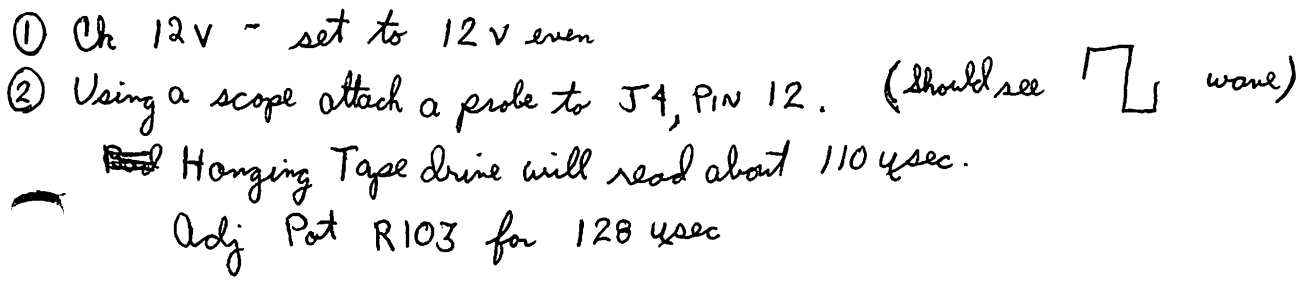 ① Ch 12V - set to 12 v even
② Using a scope attach a probe to J4, PIN 12. (Should see wave)
Hanging Tape drive will read about 110 μsec.
Adj Pot R103 for 128 μsec